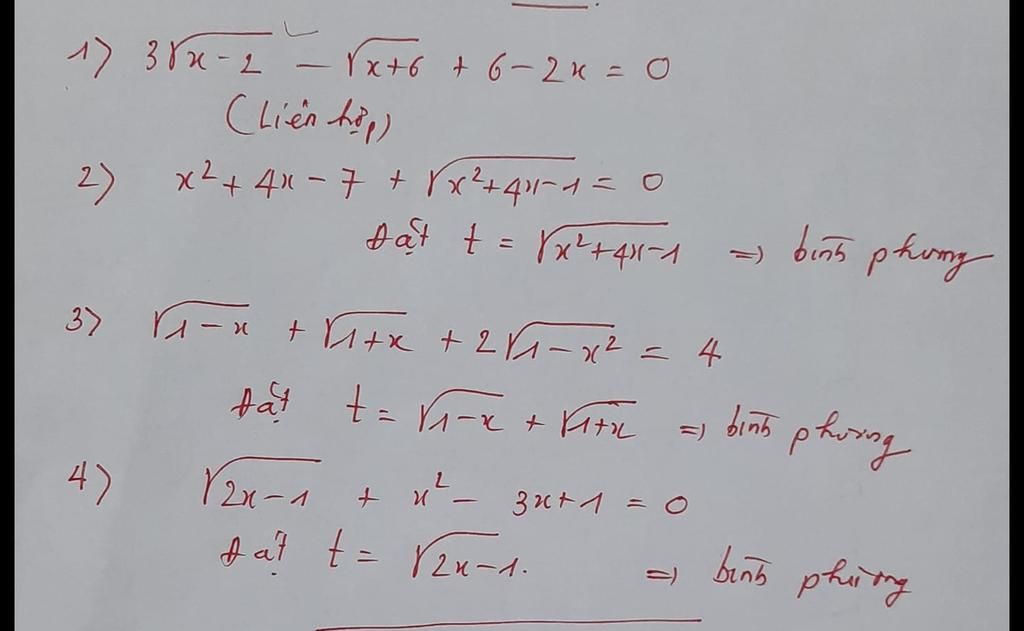 1) 3√(x-2) - √(x+6) + 6-2x = 0
(Liên hợp)
2) x²+4x-7 + √(x²+4x-1) = 0
Đặt t = √(x²+4x-1) => bình phương
3) √(1-x) + √(1+x) + 2√(1-x²) = 4
Đặt t = √(1-x) + √(1+x) => bình phương
4) √(2x-1) + x² - 3x+1 = 0
Đặt t = √(2x-1). => bình phương